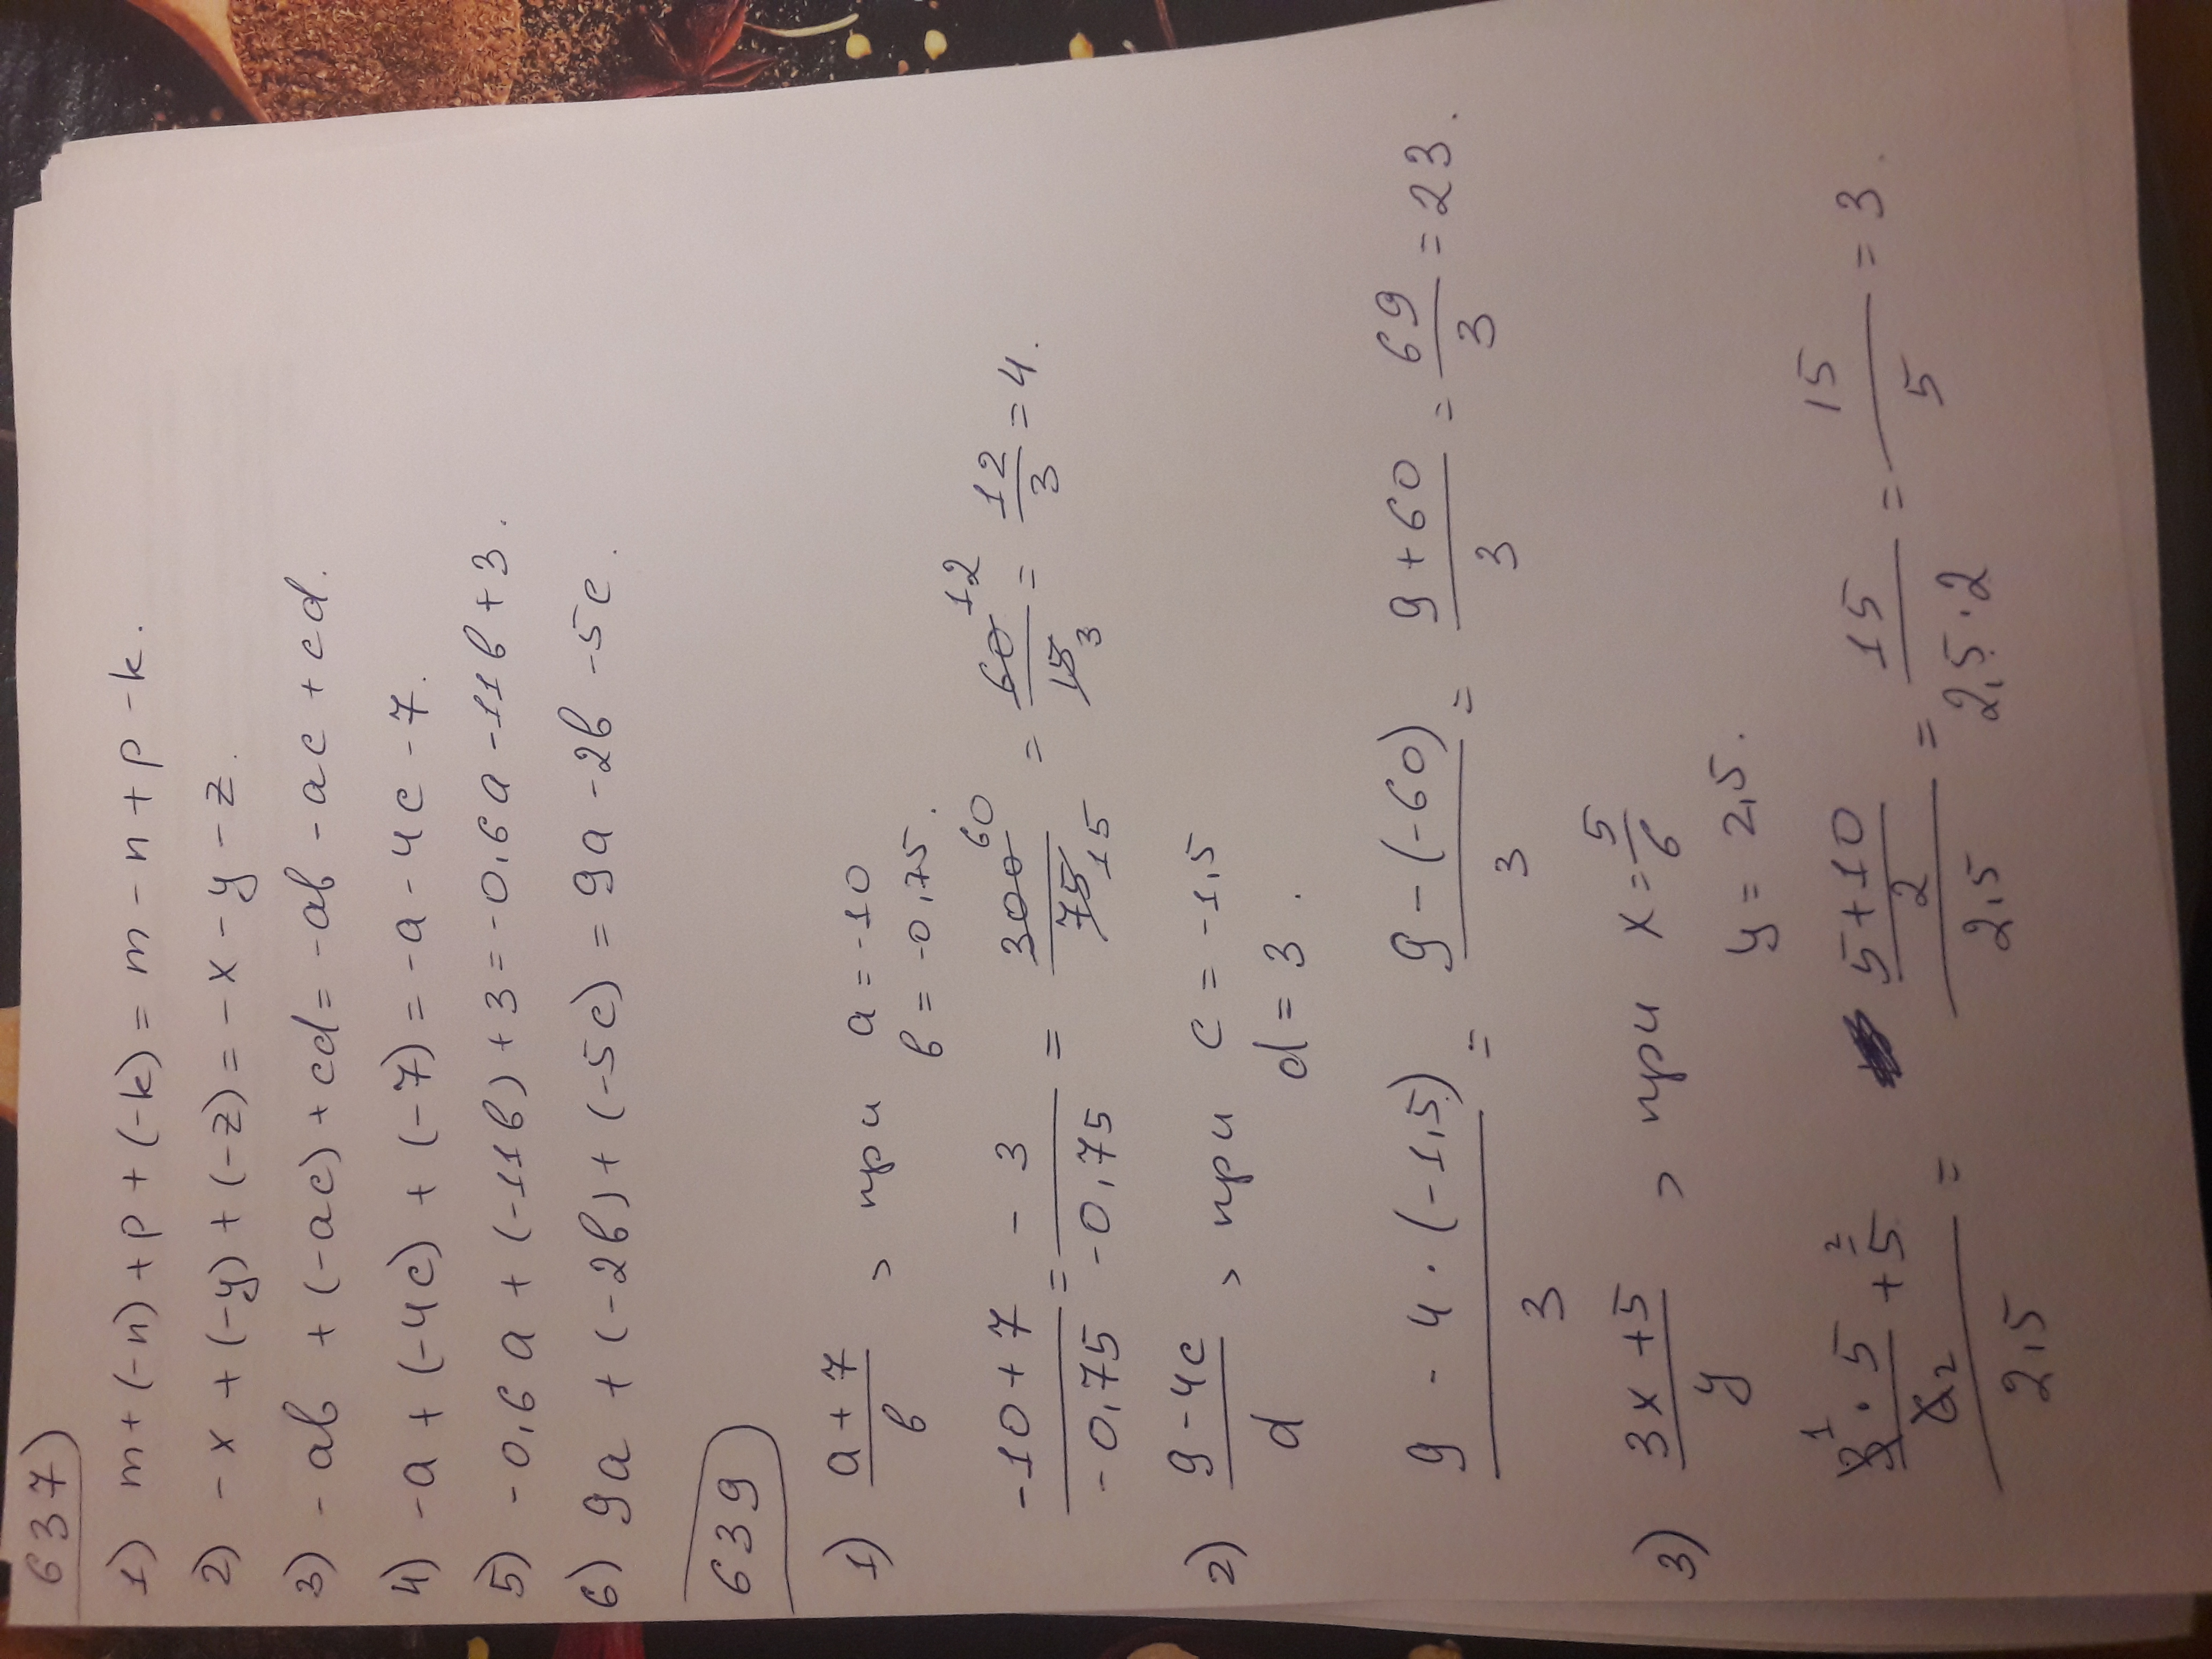 637)
1) m + (-n) + p + (-k) = m - n + p - k.
2) - x + (-y) + (-z) = - x - y - z.
3) - ab + (-ac) + cd = -ab - ac + cd.
4) -a + (-4c) + (-7) = -a - 4c - 7.
5) - 0,6a + (-11b) + 3 = -0,6a - 11b + 3.
6) 9a + (-2b) + (-5c) = 9a - 2b - 5c.
639
1) (a + 7)/b , при a = -10
b = -0,75.
(-10 + 7)/(-0,75) = (-3)/(-0,75) = 300/75 = 60/15 = 12/3 = 4.
60 15 12 3
2) (9 - 4c)/d , при c = -1,5
d = 3.
(9 - 4 · (-1,5))/3 = (9 - (-60))/3 = (9 + 60)/3 = 69/3 = 23.
3) (3x + 5)/y , при x = 5/6
y = 2,5.
((3 · 5)/6 + 5)/2,5 = ((5 + 10)/2)/2,5 = 15/(2,5 · 2) = 15/5 = 3.
1 2 2